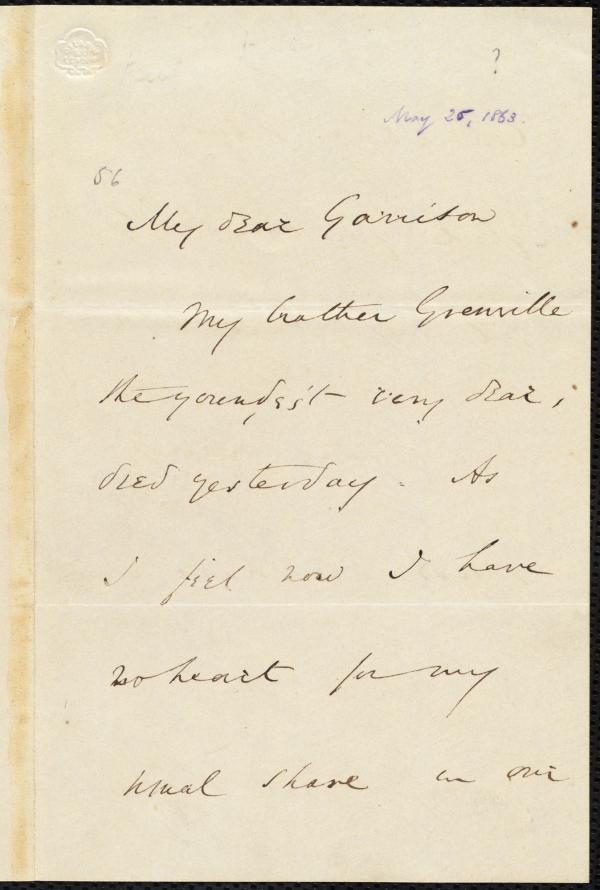 ?
May 25, 1863.
56
My dear Garrison
My brother Grenville
the youngest very dear,
died yesterday. As
I feel now I have
no heart for my
usual share in our